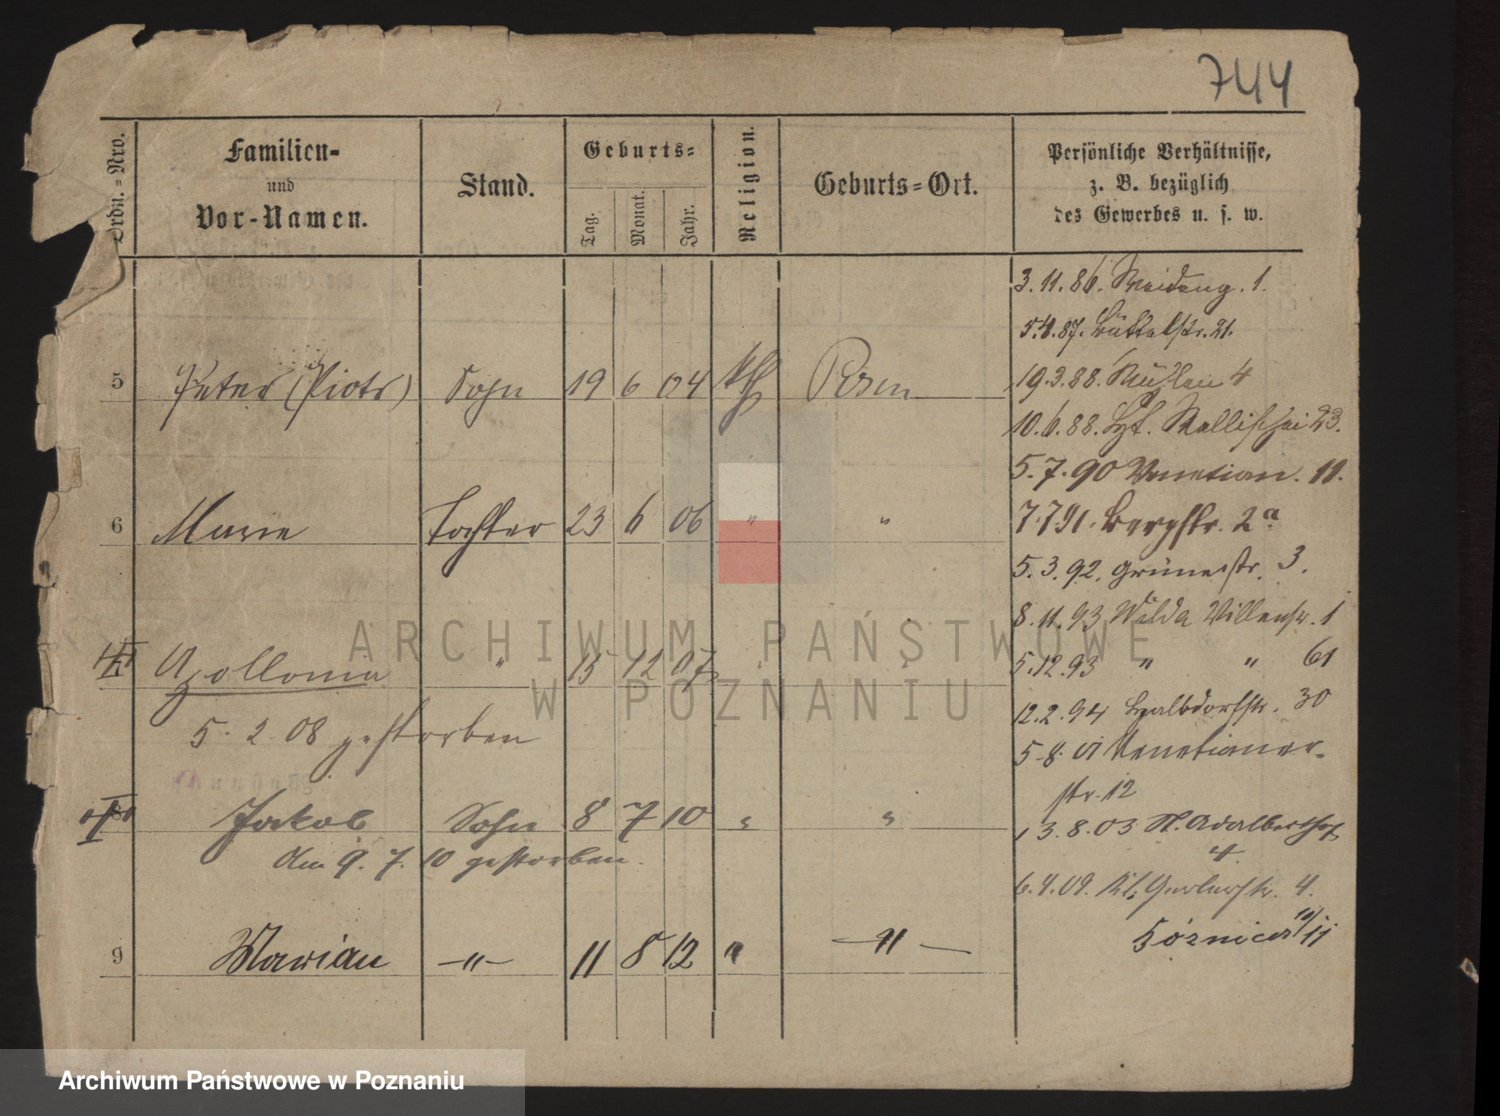 744
Ordn.-Nro.
Familien-
und
Vor-Namen.
Stand.
Geburts-
Tag.
Monat.
Jahr.
Religion.
Geburts-Ort.
Persönliche Verhältnisse,
z. B. bezüglich
des Gewerbes u. s. w.
3.11.86. Weideng. 1.
5.4.87. Büttelstr. 21.
5 Peter (Piotr) Sohn 19 6 04 kth Posen
19.3.88. Mühlen 4
10.6.88. Wallischei 23.
5.7.90 Venetian. 11.
6 Marie Tochter 23 6 06 " "
7.7.91. Bergstr. 2a
5.3.92. Grünestr. 3.
8.11.93 Wilda Villenstr. 1
Apollonia " 15 12 07 " "
5.12.93 " " 61
5. 2. 08 gestorben
12.2.94 Halbdorfstr. 30
5.8.01 Venetianer-
str. 12
Jakob Sohn 8 7 10 " "
13.8.03 St. Adalbertstr
4.
am 9. 7. 10 gestorben.
6.4.09. Kl. Gerberstr. 4.
9 Marian -"- 11 8 12 " -"-
10/11
ARCHIWUM PAŃSTWOWE
W POZNANIU
Archiwum Państwowe w Poznaniu